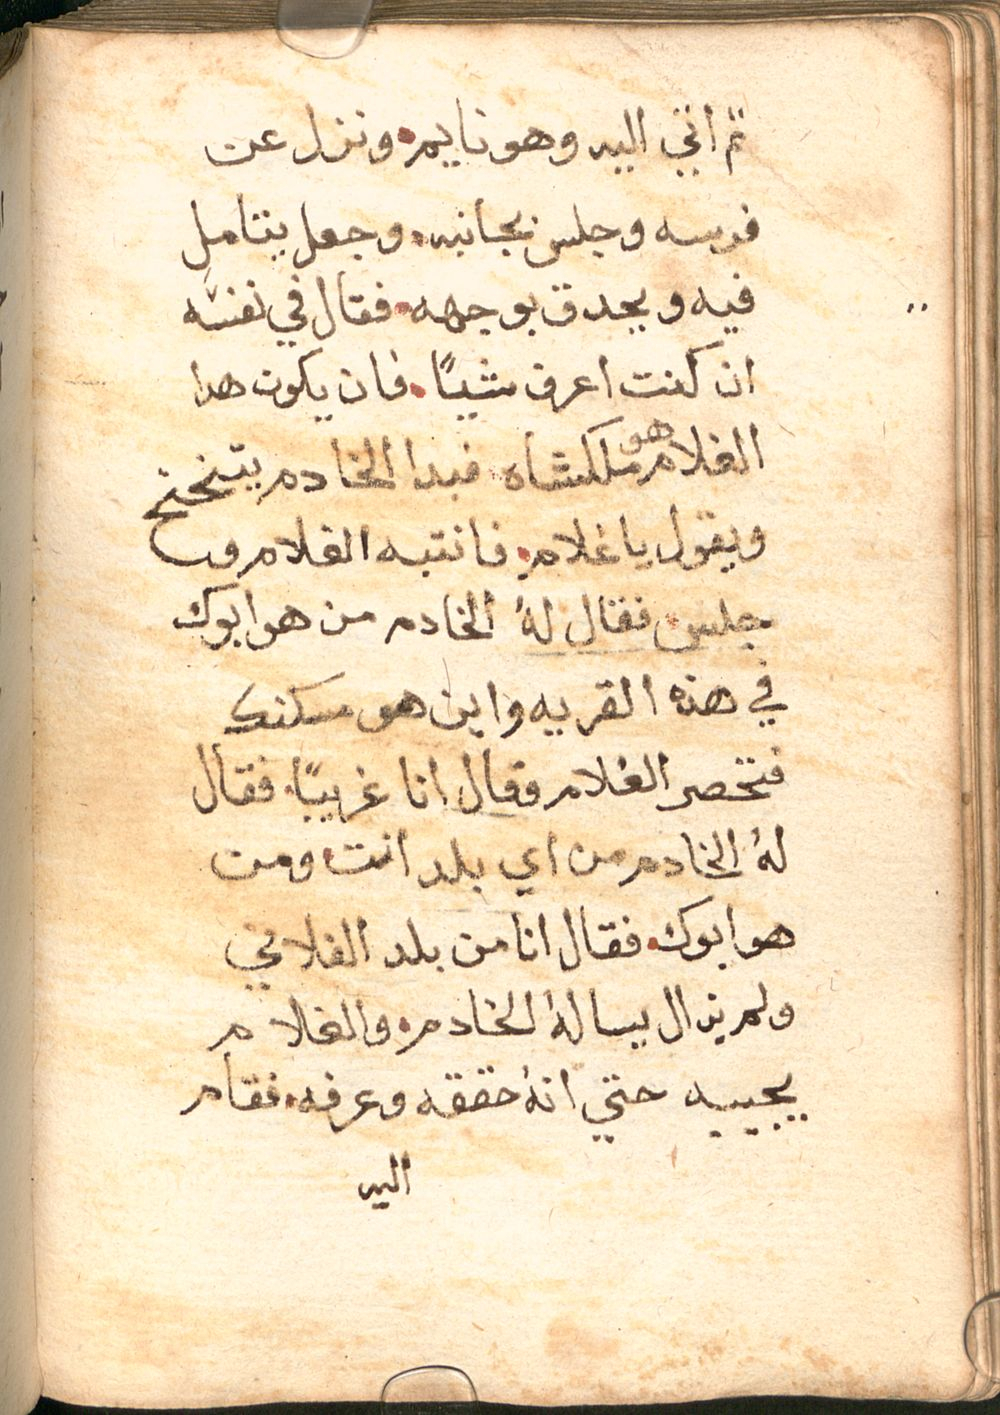 ثم اتي اليه وهو نايم. ونزل عن
فرسه وجلس بجانبه. وجعل يتامل
فيه ويحدق بوجهه. فقال في نفسه
ان كنت اعرف شيًا. فان يكون هدا
الغلام هو ملكشاه. فبدا الخادم يتنحنح
ويقول يا غلام. فانتبه الغلام و
جلس. فقال لهُ الخادم من هو ابوك
في هذه القريه واين هو مسكنك
فتحصر الغلام وقال انا غريبًا. فقال
لهُ الخادم من اي بلد انت ومن
هو ابوك. فقال انا من بلد الفلاني
ولم يزال يسالهُ الخادم. والغلام
يجيبه حتي انهُ حققه وعرفه. فقام
اليه